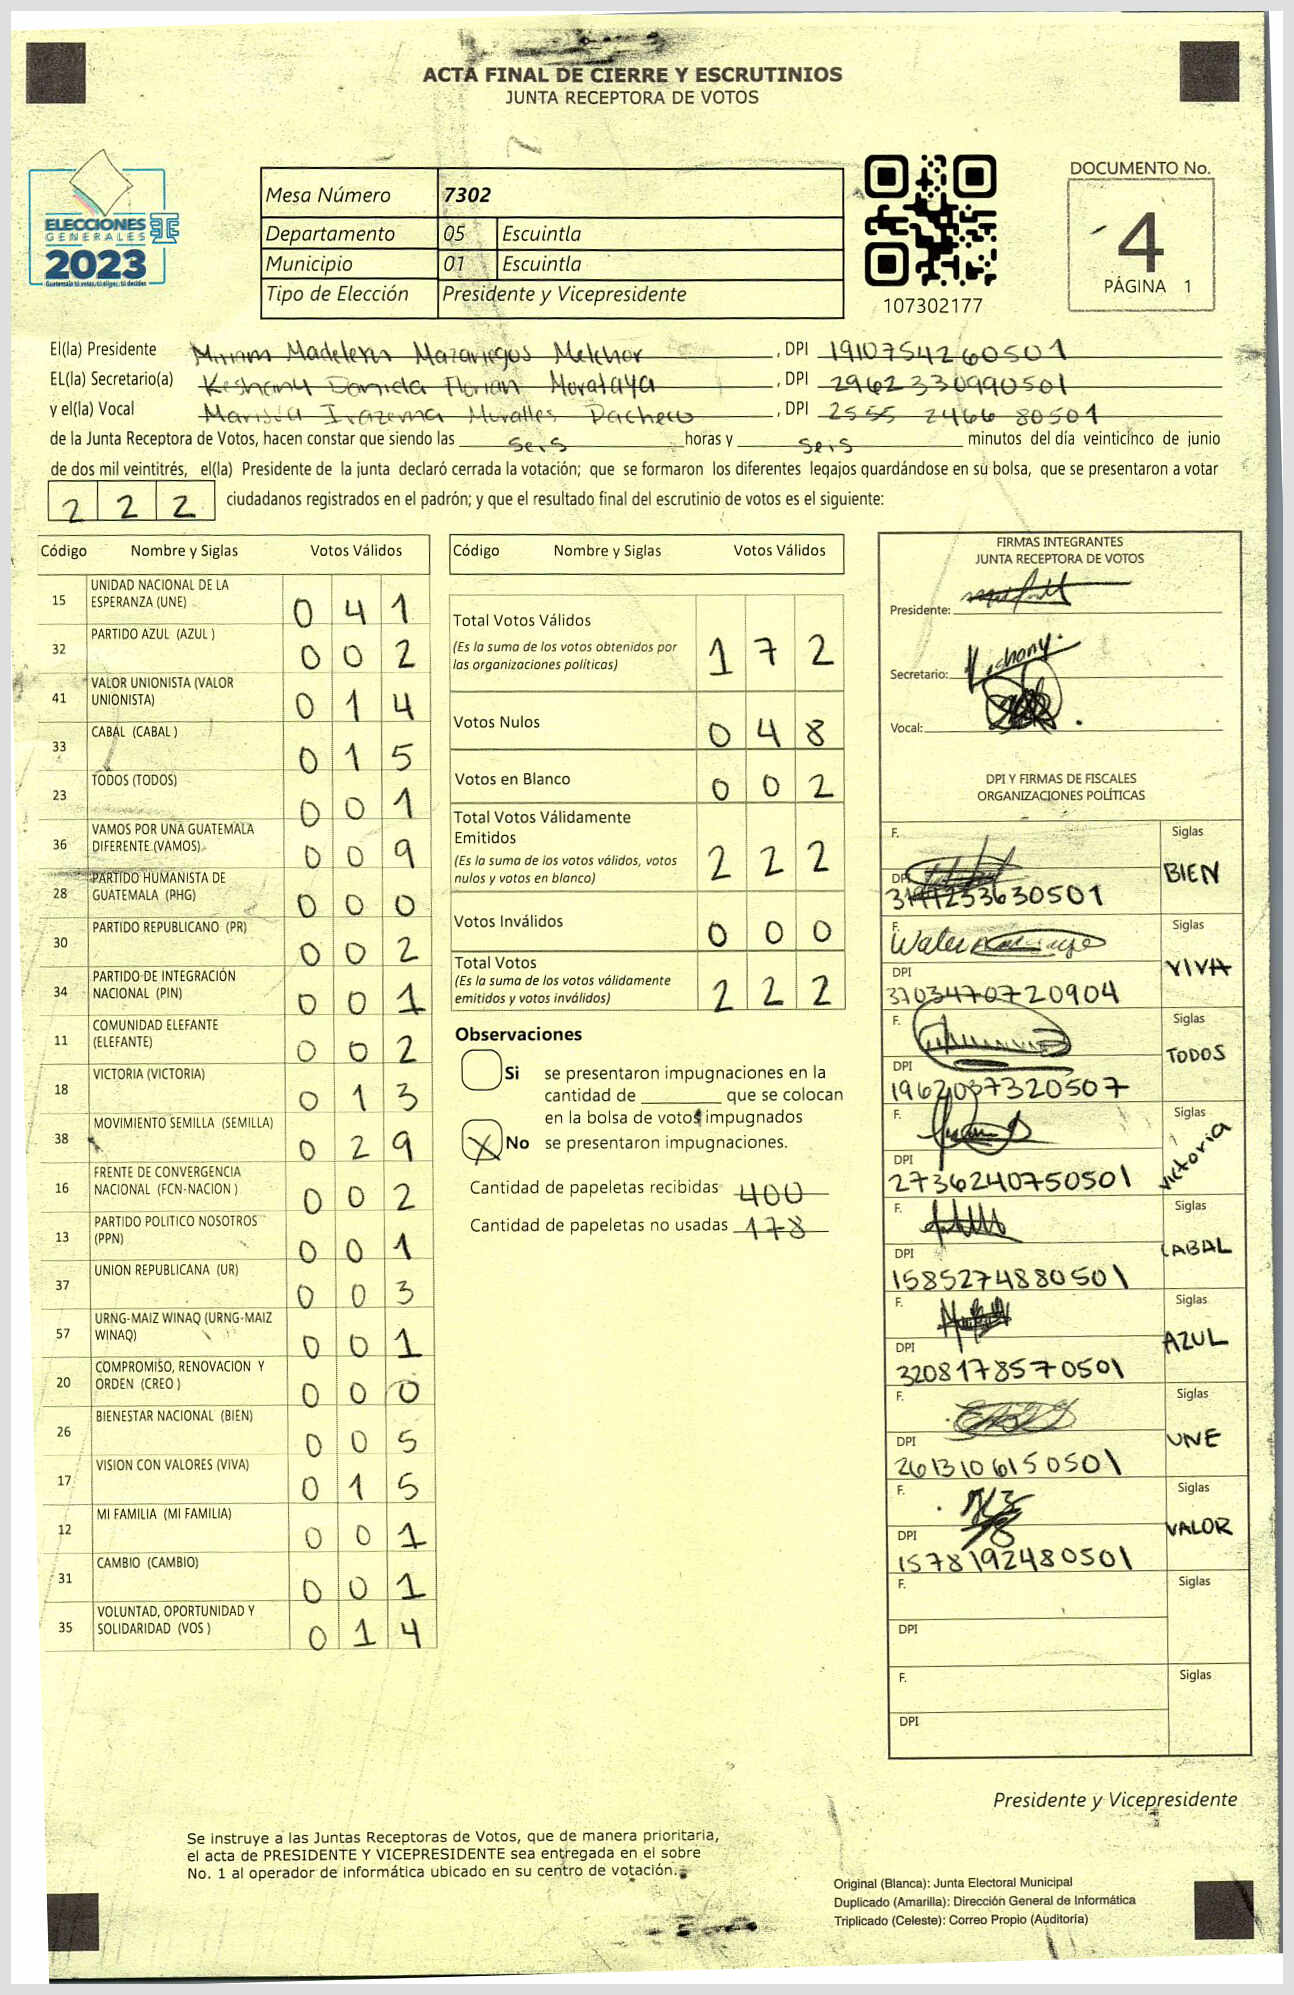 ACTA FINAL DE CIERRE Y ESCRUTINIOS
JUNTA RECEPTORA DE VOTOS
ELECCIONES
GENERALES
2023
Mesa Número 7302
Departamento 05 Escuintla
Municipio 01 Escuintla
Tipo de Elección Presidente y Vicepresidente
107302177
DOCUMENTO No.
4
PÁGINA 1
El(la) Presidente Miriam Madeleyn Mazariegos Melchor, DPI 1910754260501
EL(la) Secretario(a) Keshany Daniela Florian Morataya, DPI 2962330990501
y el(la) Vocal Irazema Muralles Pacheco, DPI 2555 2466 80501
de la Junta Receptora de Votos, hacen constar que siendo las seis horas y seis minutos del día veinticinco de junio
de dos mil veintitrés, el(la) Presidente de la junta declaró cerrada la votación; que se formaron los diferentes legajos guardándose en su bolsa, que se presentaron a votar
222 ciudadanos registrados en el padrón; y que el resultado final del escrutinio de votos es el siguiente:
Código Nombre y Siglas Votos Válidos
15 UNIDAD NACIONAL DE LA ESPERANZA (UNE) 041
32 PARTIDO AZUL (AZUL ) 002
41 VALOR UNIONISTA (VALOR UNIONISTA) 014
33 CABAL (CABAL ) 015
23 TODOS (TODOS) 001
36 VAMOS POR UNA GUATEMALA DIFERENTE (VAMOS) 009
28 PARTIDO HUMANISTA DE GUATEMALA (PHG) 000
30 PARTIDO REPUBLICANO (PR) 002
34 PARTIDO DE INTEGRACIÓN NACIONAL (PIN) 001
11 COMUNIDAD ELEFANTE (ELEFANTE) 002
18 VICTORIA (VICTORIA) 013
38 MOVIMIENTO SEMILLA (SEMILLA) 029
16 FRENTE DE CONVERGENCIA NACIONAL (FCN-NACION ) 002
13 PARTIDO POLITICO NOSOTROS (PPN) 001
37 UNION REPUBLICANA (UR) 003
57 URNG-MAIZ WINAQ (URNG-MAIZ WINAQ) 001
20 COMPROMISO, RENOVACION Y ORDEN (CREO ) 000
26 BIENESTAR NACIONAL (BIEN) 005
17 VISION CON VALORES (VIVA) 015
12 MI FAMILIA (MI FAMILIA) 001
31 CAMBIO (CAMBIO) 001
35 VOLUNTAD, OPORTUNIDAD Y SOLIDARIDAD (VOS ) 014
Código Nombre y Siglas Votos Válidos
Total Votos Válidos 172
(Es la suma de los votos obtenidos por
las organizaciones políticas)
Votos Nulos 048
Votos en Blanco 002
Total Votos Válidamente
Emitidos 222
(Es la suma de los votos válidos, votos
nulos y votos en blanco)
Votos Inválidos 000
Total Votos 222
(Es la suma de los votos válidamente
emitidos y votos inválidos)
Observaciones
Si se presentaron impugnaciones en la
cantidad de ________ que se colocan
en la bolsa de votos impugnados
X No se presentaron impugnaciones.
Cantidad de papeletas recibidas 400
Cantidad de papeletas no usadas 178
FIRMAS INTEGRANTES
JUNTA RECEPTORA DE VOTOS
Presidente:
Secretario: Keshany
Vocal:
DPI Y FIRMAS DE FISCALES
ORGANIZACIONES POLÍTICAS
F. Siglas
DPI BIEN
F. Siglas
DPI VIVA
3703470720904
F. Siglas
DPI TODOS
1962037320507
F. Siglas
DPI Victoria
2736240750501
F. Siglas
DPI CABAL
1585274880501
F. Siglas
DPI AZUL
3208178570501
F. Siglas
DPI UNE
2613106150501
F. Siglas
DPI VALOR
1578192480501
F. Siglas
DPI
F. Siglas
DPI
Presidente y Vicepresidente
Se instruye a las Juntas Receptoras de Votos, que de manera prioritaria,
el acta de PRESIDENTE Y VICEPRESIDENTE sea entregada en el sobre
No. 1 al operador de informática ubicado en su centro de votación.
Original (Blanca): Junta Electoral Municipal
Duplicado (Amarilla): Dirección General de Informática
Triplicado (Celeste): Correo Propio (Auditoría)